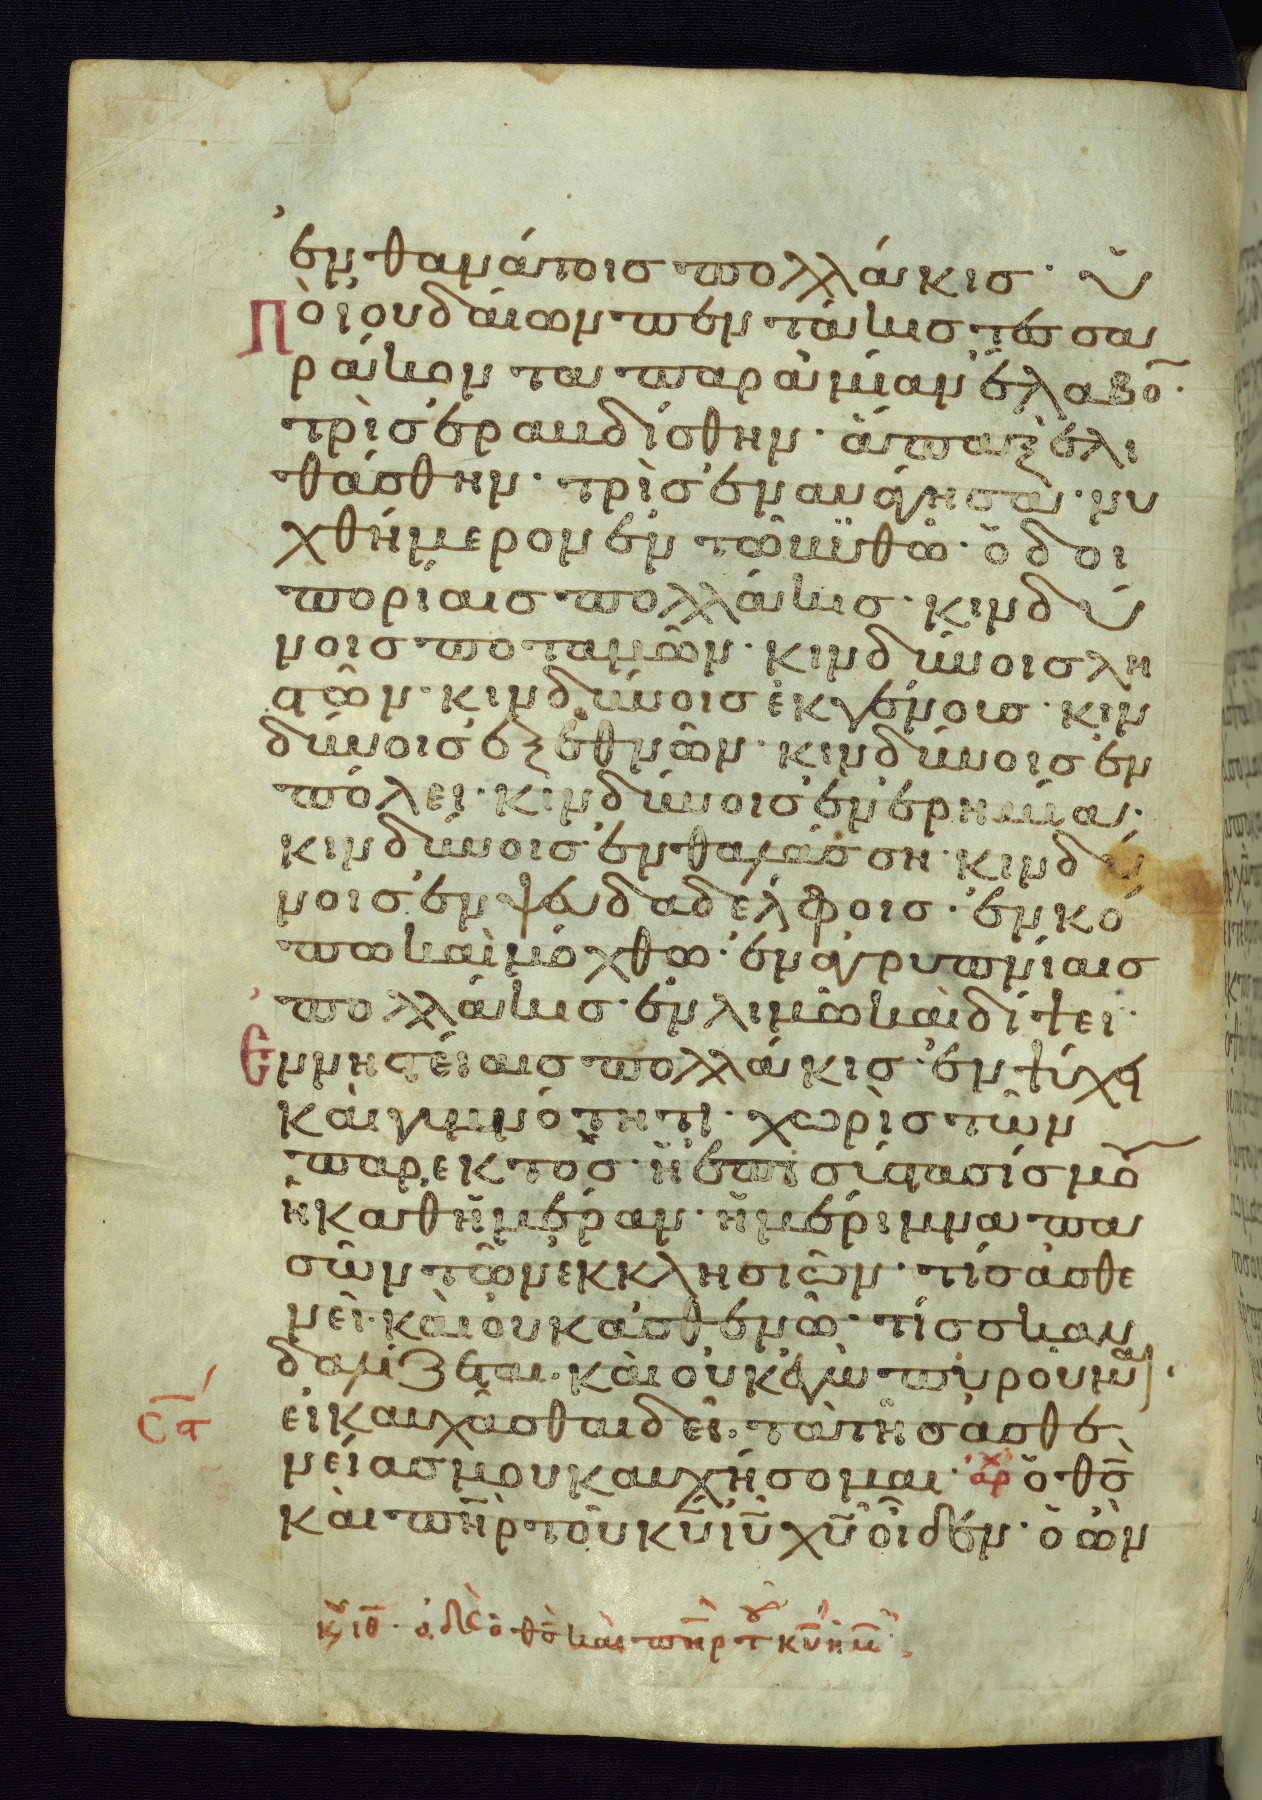 ἐν θανάτοις πολλάκις· ὑ
πὸ ἰουδαίων πεντάκις τεσσα
ράκοντα παρὰ μίαν ἔλαβο̅·
τρὶς ἐρραβδίσθην· ἅπαξ ἐλι
θάσθην· τρὶς ἐναυάγησα· νυ
χθήμερον ἐν τῶ βυθῶ· ὁδοι
πορίαις πολλάκις· κινδύ
νοις ποταμῶν· κινδύνοις λη
στῶν· κινδύνοις ἐκ γένους· κιν
δύνοις ἐξ ἐθνῶν· κινδύνοις ἐν
πόλει· κινδύνοις ἐν ἐρημία·
κινδύνοις ἐν θαλάσση· κινδύ
νοις ἐν ψευδαδέλφοις· ἐν κό
πω καὶ μόχθω· ἐν ἀγρυπνίαις
πολλάκις· ἐν λιμῶ καὶ δίψει·
Ἐν νηστείαις πολλάκις· ἐν ψύχει
καὶ γυμνότητι· χωρὶς τῶν
παρεκτός· ἡ ἐπισύστασίς μου
ἡ καθημέραν· ἡ μέριμνα πα
σῶν τῶν ἐκκλησιῶν· τίς ἀσθε
νεῖ· καὶ οὐκ ἀσθενῶ· τίς σκαν
δαλίζεται· καὶ οὐκ ἐγὼ πυροῦμαι·
εἰ καυχᾶσθαι δεῖ· τὰ τῆς ἀσθε
νείας μου καυχήσομαι· αρχ ὁ θ̅ς̅
καὶ π̅η̅ρ τοῦ κ̅υ̅ ι̅υ̅ χ̅υ̅ οἶδεν· ὁ ὢν
κυ ιθ· ἀδε ὁ θ̅ς̅ καὶ π̅η̅ρ τοῦ κ̅υ̅ ἡμ